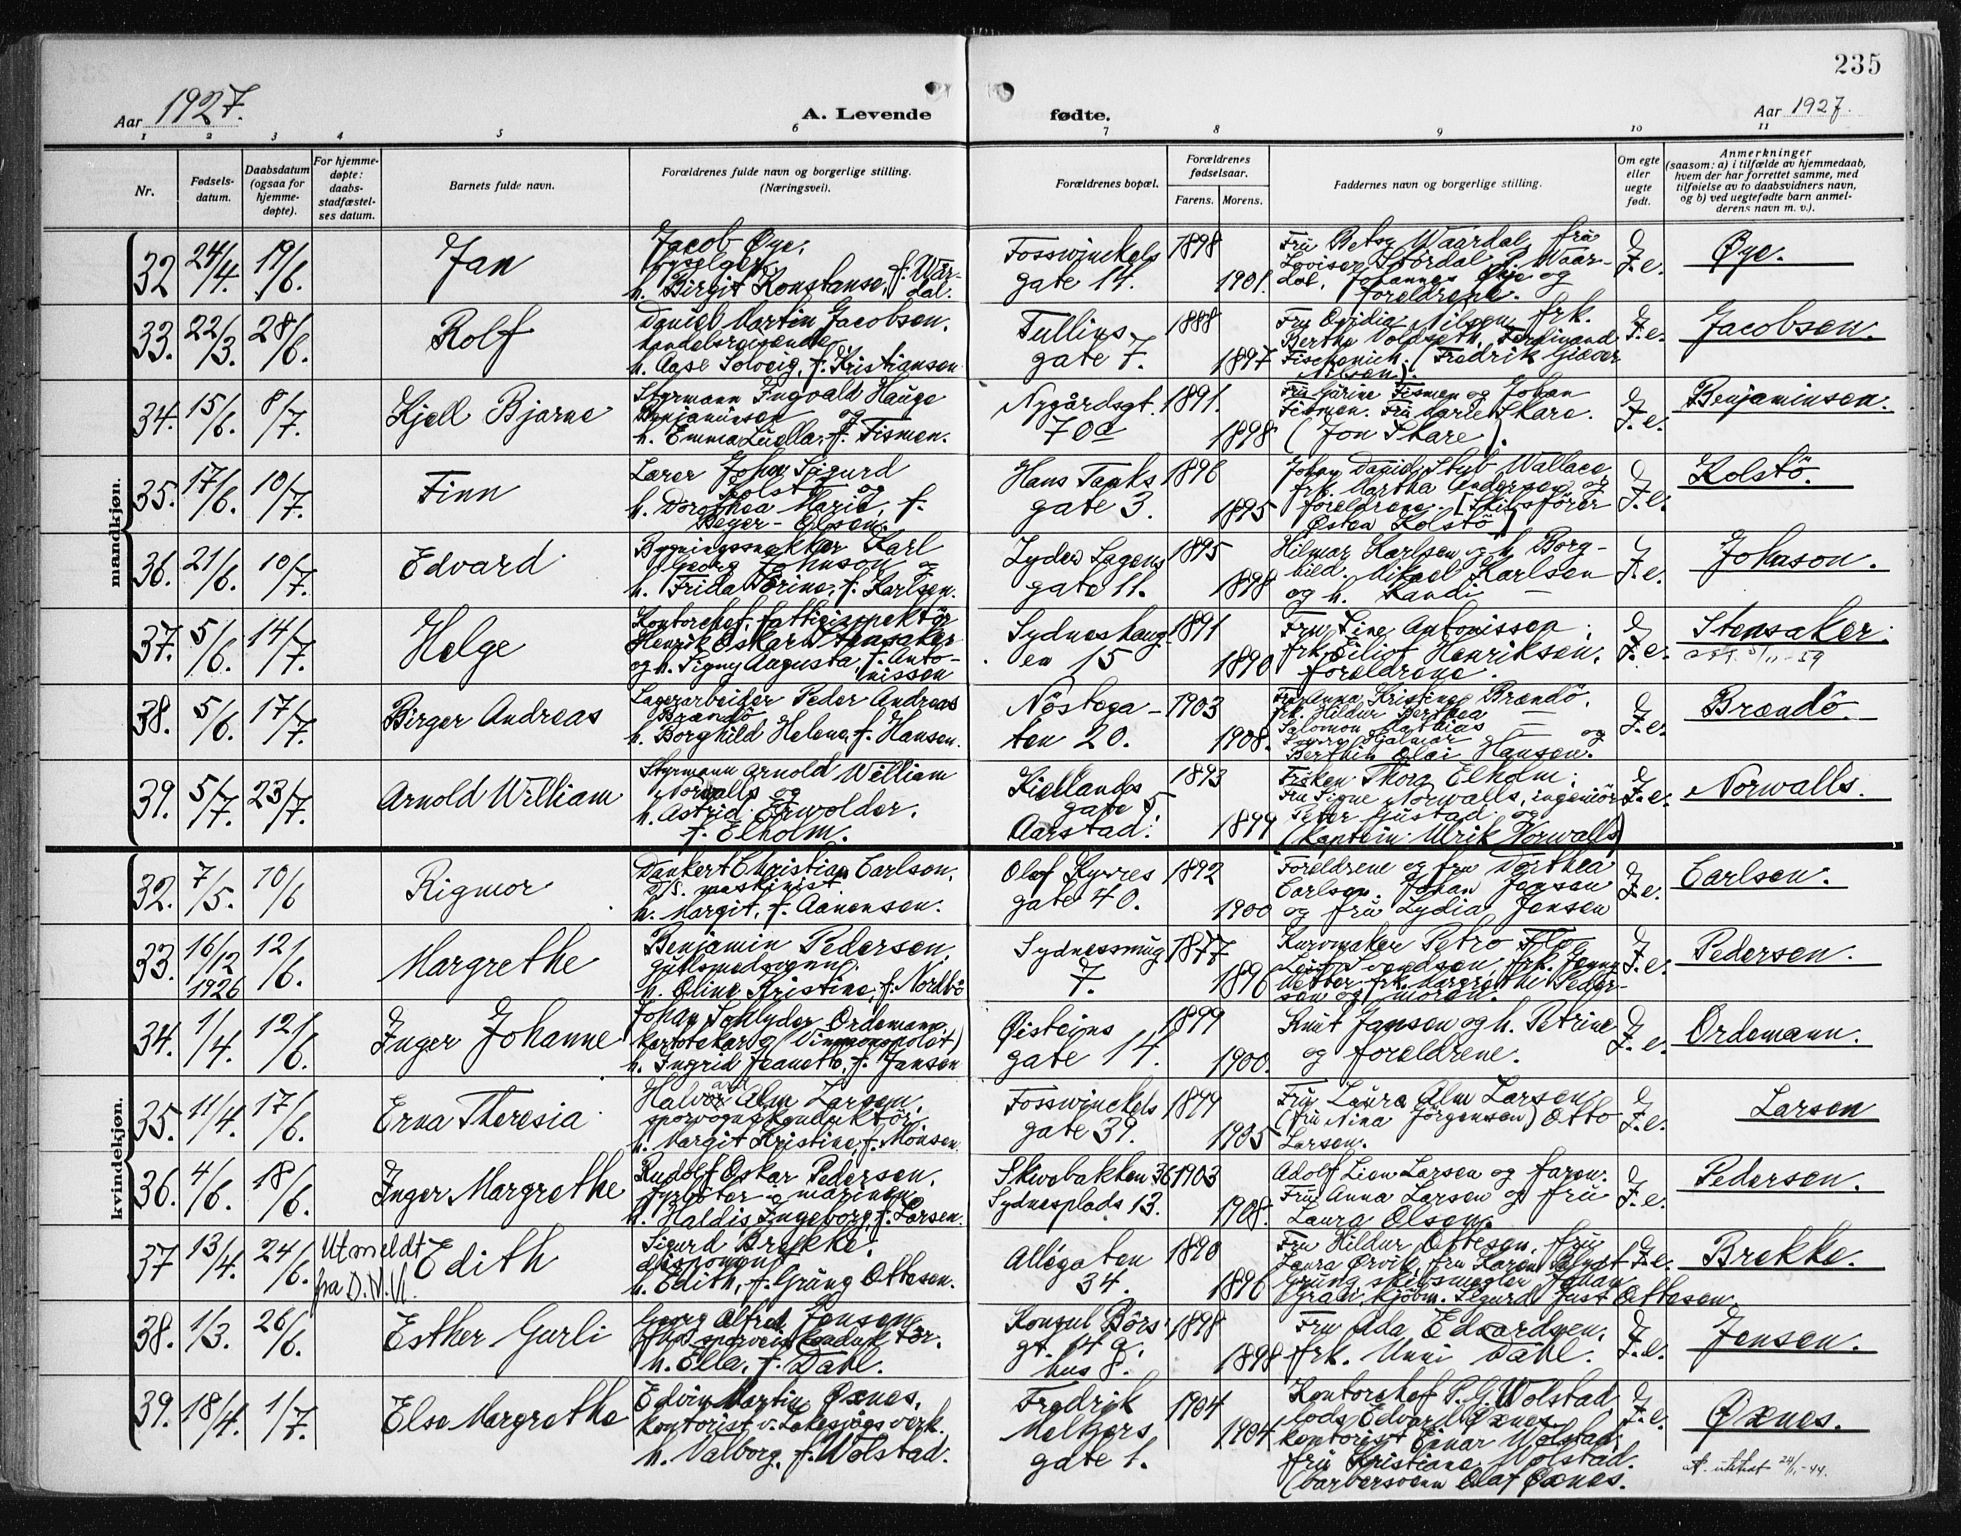 235
Aar 1927.
A. Levende fødte.
Aar 1927.
1 2 3 4 5 6 7 8 9 10 11
Nr.
Fødsels-
datum.
Daabsdatum
(ogsaa for
hjemme-
døpte).
For hjemme-
døpte:
daabs-
stadfæstel-
ses datum.
Barnets fulde navn.
Forældrenes fulde navn og borgerlige stilling.
(Næringsvei).
Forældrenes bopæl.
Forældrenes
fødselsaar.
Farens. Morens.
Faddernes navn og borgerlige stilling.
Om egte
eller
uegte
født.
Anmerkninger
(saasom: a) i tilfælde av hjemmedaab,
hvem der har forrettet samme, med
tilføielse av to daabsvidners navn,
og b) ved uegtefødte barn anmel-
derens navn m. v.).
mandkjøn.
32 24/4. 19/6. Jan
Jacob Øye,
h. Birgit Konstanse, f. Waar-
dal.
Fosswinckels
gate 14.
1898
1901.
Fru Betsy Waardal, fru
Lovise Stördal, P. Waar-
dal, Johannes Øye og
foreldrene.
I. e.
Øye.
33. 22/3. 28/6. Rolf
Daniel Martin Jacobsen,
handelsreisende
h. Aase Solveig, f. Kristiansen
Tullins-
gate 7.
1888
1897
Fru Ovidia Nilsen, frk.
Berthe Voldseth, Ferdinand
(Fredrik Giæver
Nilsen).
I. e.
Jacobsen.
34. 15/6. 8/7. Kjell Bjarne
Styrmann Ingvald Hauge
Benjaminsen og
h. Emma Luella, f. Fismen.
Nygårdsgt.
70a
1891.
1898
Fru Gurine Fismen og Johan
Fismen. Fru Marie Skare.
(Jon Skare).
I. e.
Benjaminsen.
35. 17/6. 10/7. Finn
Lærer Johan Sigurd
Kolstö og
h. Dorothea Marie, f.
Beyer-Olsen.
Hans Tanks
gate 3.
1896
1895
Johan David Stub Wallace
frk. Martha Andersen og
foreldrene. [Skibsförer
Østen Kolstö]
I. e.
Kolstö.
36. 21/6. 10/7. Edvard
Bygningssnekker Karl
Georg Johnson og
h. Frida Torine, f. Karlsen.
Lyder Sagens
gate 11.
1895
1898
Hilmar Karlsen og h. Borg-
hild. Mikael Karlsen
og h. Randi —
I. e.
Johnson.
37. 5/6. 14/7. Helge
Kontorchef, fattiginspektör
Henrik Oskar Stensaker
og h. Signy Augusta, f. Anto-
nissen
Sydneshaug-
en 15
1891
1890
Fru Sine Antonissen,
frk. Eiliot Henriksen.
foreldrene.
I. e.
Stensaker.
5/11-59
38. 5/6. 17/7. Birger Andreas
Lagerarbeider Peder Andreas
Brændö
h. Borghild Helene, f. Hansen.
Nöstega-
ten 20.
1903
1908.
Fru Anna Kristine Brændö.
frk. Hildur Berthea —
Salomon Mathias —
Georg Hjalmar — og
Berthin Olai Hansen.
I. e.
Brændö.
39. 5/7. 23/7. Arnold William
Styrmann Arnold William
Norwalls og
h. Astrid
f. Elholm.
Kiellands
gate 5
Aarstad.
1893
1899
Fröken Thora Elholm,
Fru Signe Norwalls, ingeniör
Gustad og
(kaptein Ulrik Norwalls)
I. e.
Norwalls.
kvindekjøn.
32. 7/5. 10/6 Rigmor
Dankert Christian Carlson,
D/S. maskinist.
h. Margit, f. Aanensen.
Olaf Kyrres
gate 40.
1892
1900
Foreldrene og fru Dorthea
Carlsen. Johan Jansen
og fru Lydia Jensen
I. e.
Carlsen.
33. 16/12 1926 12/6. Margrethe
Benjamin Pedersen,
h. Oline Kristine, f. Nordbö
Sydnessmug
7.
1877
1896
Kurvmaker Petro
Svendsen, frk. Jenny
frk. Margrethe Peder-
sen og moren.
I. e.
Pedersen.
34. 1/4. 12/6. Inger Johanne
Johan Schlyder Ordemann,
(Vinmonopolet)
h. Ingrid Jeanette, f. Jansen
Øisteins
gate 14.
1899
1900.
Knut Jansen og h. Petrine
og foreldrene.
I. e.
Ordemann.
35. 11/4. 17/6. Erna Theresia
Halvar Alm Larsen,
sporvognskonduktör,
h. Margit Kristine, f. Monsen.
Fosswinckels
gate 39.
1899
1905
Fru Laura Alm Larsen,
(fru Nina Jörgensen) Otto
Larsen.
I. e.
Larsen
36. 4/6. 18/6. Inger Margrethe
Rudolf Oskar Pedersen,
fyrböter marinen
h. Haldis Ingeborg, f. Larsen.
Skivebakken 36
Sydnesplads 13.
1903
1908.
Adolf Lien Larsen og faren.
Fru Anna Larsen og fru
Laura Olsen.
I. e.
Pedersen.
37 13/4. 24/6. Utmeldt
fra D.N.K.
Edith
Sigurd Brekke,
disponent
h. Edith, f. Grüng Ottesen.
Allégaten
34.
1890
1896
Fru Hildur Ottesen, fru
Laura Örvik, fru Karen
Grüng, skibsmegler Johan
kjöbm. Sigurd Just Ottesen
I. e.
Brekke.
38. 1/3. 26/6. Esther Gurli
Georg Alfred Jensen
sporveiskonduktör.
h. Ella, f. Dahl.
Konsul Börs'
gt. 14 a.
hus 8.
1898
1898
Fru Ada Edvardsen,
frk. Unni Dahl.
I. e.
Jensen.
39. 18/4. 1/7. Else Margrethe
Edvin Martin Øxnes,
kontorist v. Laksevågs verk.
h. Valborg, f. Wolstad.
Fredrik
Meltzers
gate 1.
1904
1904
Kontorchef P. G. Wolstad,
lods Edvard Øxnes,
kontorist Einar Wolstad,
fru Kristiane Wolstad.
(barbersvenn Olaf Øxnes.
I. e.
Øxnes.
at. utskrat 24/1-44.